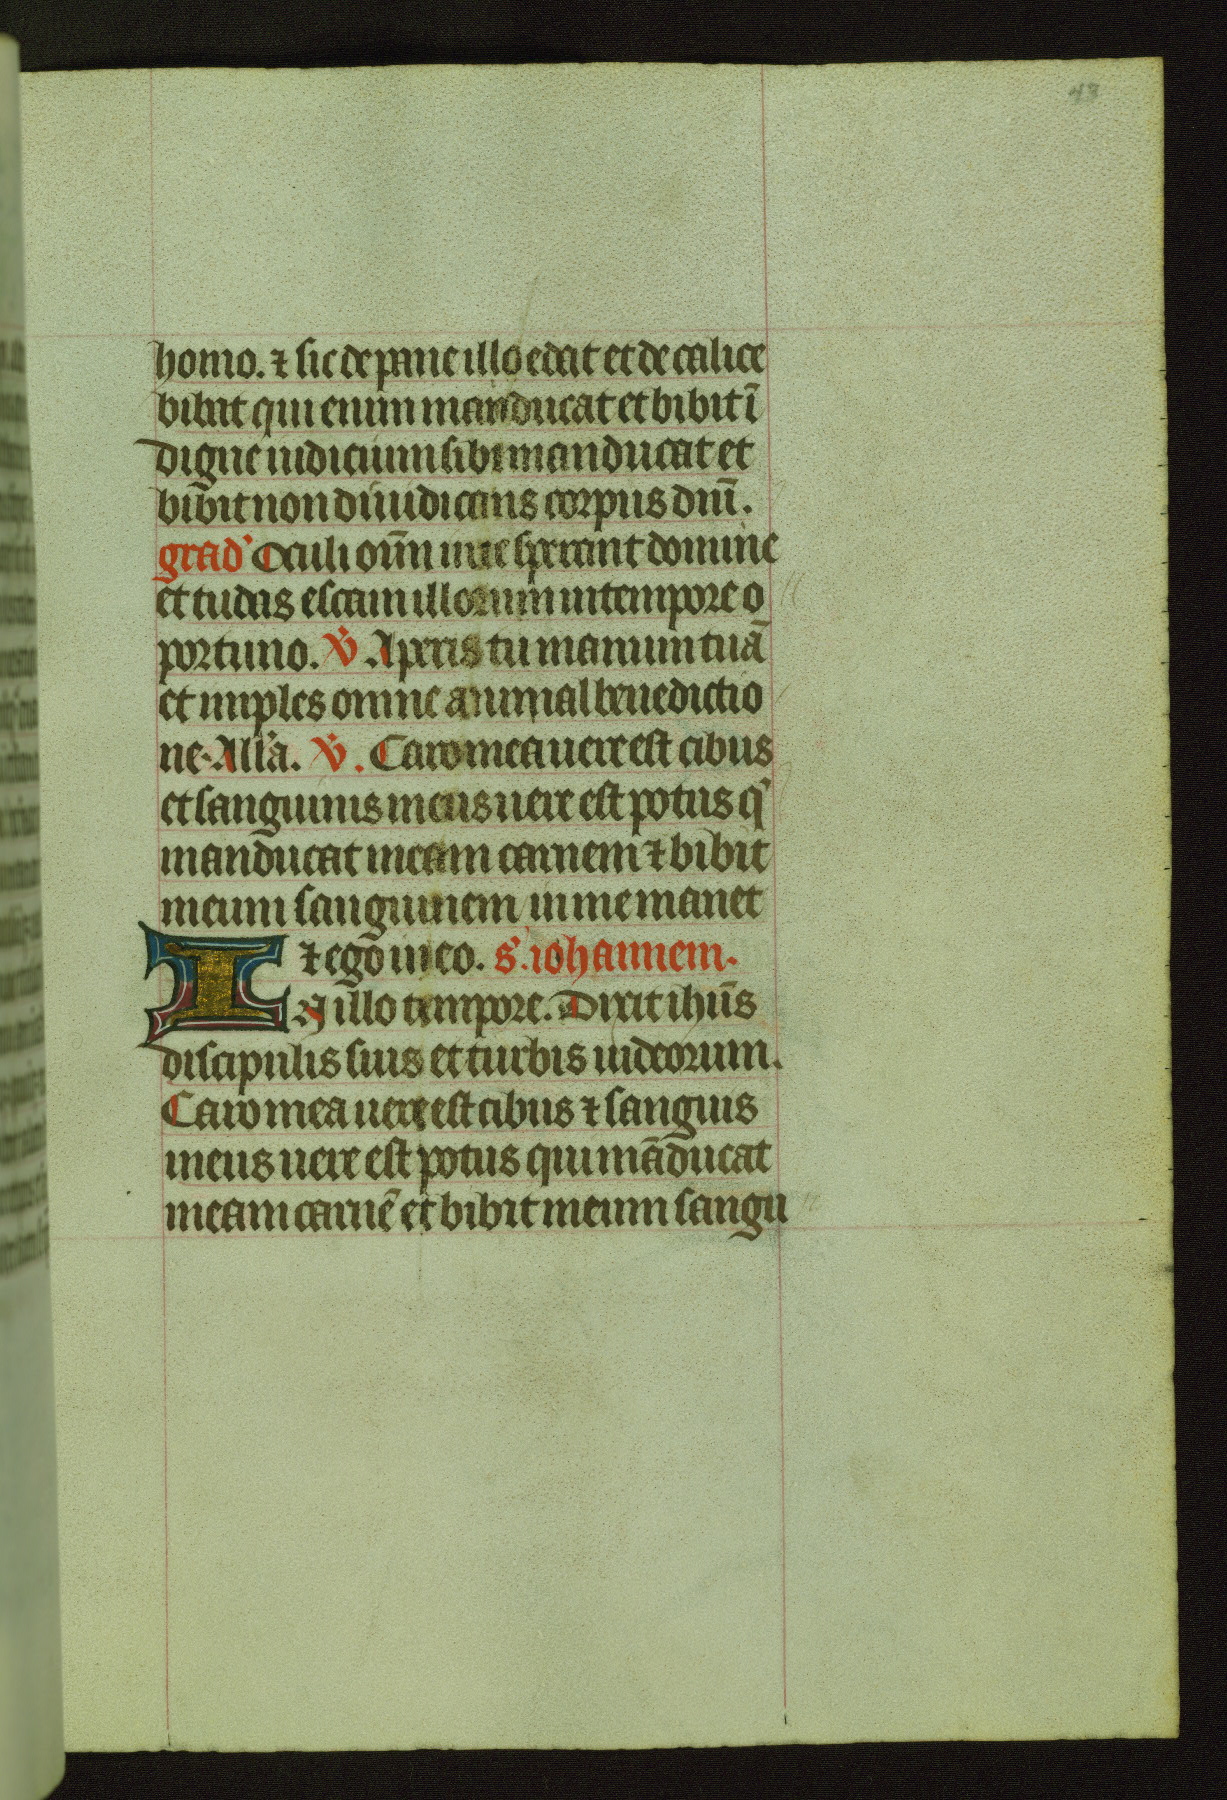 43
homo. ⁊ sic de pane illo edat et de calice
bibat qui enim manducat et bibit ī
digne iudicium sibi manducat et
bibit non diiudicans corpus dnī.
grad' Oculi oīm in te sperant domine
et tu das escam illorum in tempore o
portuno. V̓ Aperis tu manum tuā
et imples omne animal benedictio
ne. All'a. V̓. Caro mea uere est cibus
et sanguinis meus uere est potus q'
manducat meam carnem ⁊ bibit
meum sanguinem in me manet
⁊ ego in eo. s'. iohannem.
IN illo tempore. Dixit ihūs
discipulis suis et turbis iudeorum.
Caro mea uere est cibus ⁊ sanguis
meus uere est potus qui māducat
meam carnē et bibit meum sangu